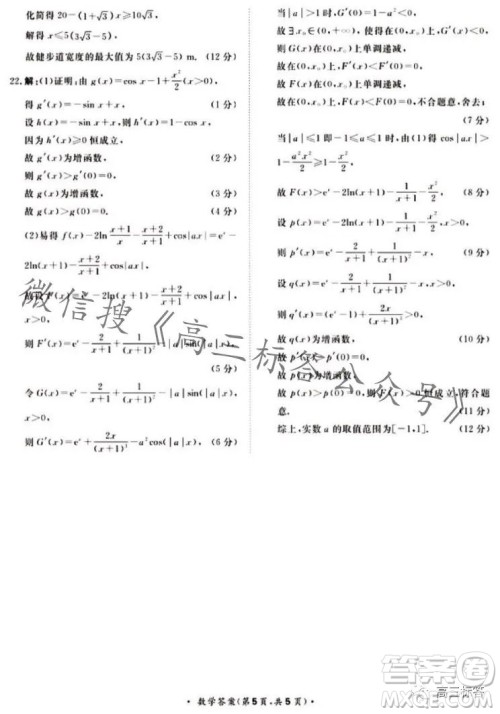 化简得 20-(1+√3)x≥10√3,
解得 x≤5(3√3-5),
故健步道宽度的最大值为 5(3√3-5) m. (12 分)
22.解:(1)证明:由 g(x)=cos x-1+x²/2(x>0),
得 g′(x)=-sin x+x, (1 分)
设 h(x)=-sin x+x,
因为 h′(x)≥0 恒成立,
故 g′(x)为增函数, (2 分)
则 g′(x)>g′(0)=0,
故 g(x)为增函数, (3 分)
故 g(x)>g(0)=0. (4 分)
(2)易得 f(x)-2ln (x+1)/x - (x+2)/(x+1) +cos|ax|=eˣ-
2ln(x+1)-(x+2)/(x+1)+cos|ax|,
2ln(x+1)-(x+2)/(x+1)+cos(|a|x),x>0,
则 F′(x)=eˣ-2/(x+1)+1/(x+1)²-|a|sin(|a|x),
(5 分)
令 G(x)=eˣ-2/(x+1)+1/(x+1)²-|a|sin(|a|x),
x>0;
则 G′(x)=eˣ+2x/(x+1)³-a²cos(|a|x), (6 分)
当|a|>1 时,G′(0)<0,
故∃x₀∈(0,+∞),使得 G′(x₀)=0,
故 G(x)在(0,x₀)上单调递减,
故在(0,x₀)上,F′(x)<F′(0)=0,
故 F(x)在(0,x₀)上单调递减,
故在(0,x₀)上,F(x)<F(0)=0,不合题意,舍去;
(7 分)
当|a|≤1 即-1≤a≤1 时,由(1)得 cos(|a|x)≥
1-a²x²/2≥1-x²/2,
故 F(x)>eˣ-2ln(x+1)-1/(x+1)-x²/2, (8 分)
设 p(x)=eˣ-2ln(x+1)-1/(x+1)-x²/2,x>0,
则 p′(x)=eˣ-2/(x+1)+1/(x+1)²-x, (9 分)
设 q(x)=eˣ-2/(x+1)+1/(x+1)²-x,x>0,
则 q′(x)=eˣ+2x/(x+1)³-1>0,
故 q(x)为增函数, (10 分)
故 p′(x)>p′(0)=0,
故 p(x)为增函数,
故 p(x)>p(0)=0,则 F(x)>0 恒成立,符合题
意. (11 分)
综上,实数 a 的取值范围为[-1,1]. (12 分)
微信搜《高三标答公众号》
数学答案(第5页,共5页)
高三标答